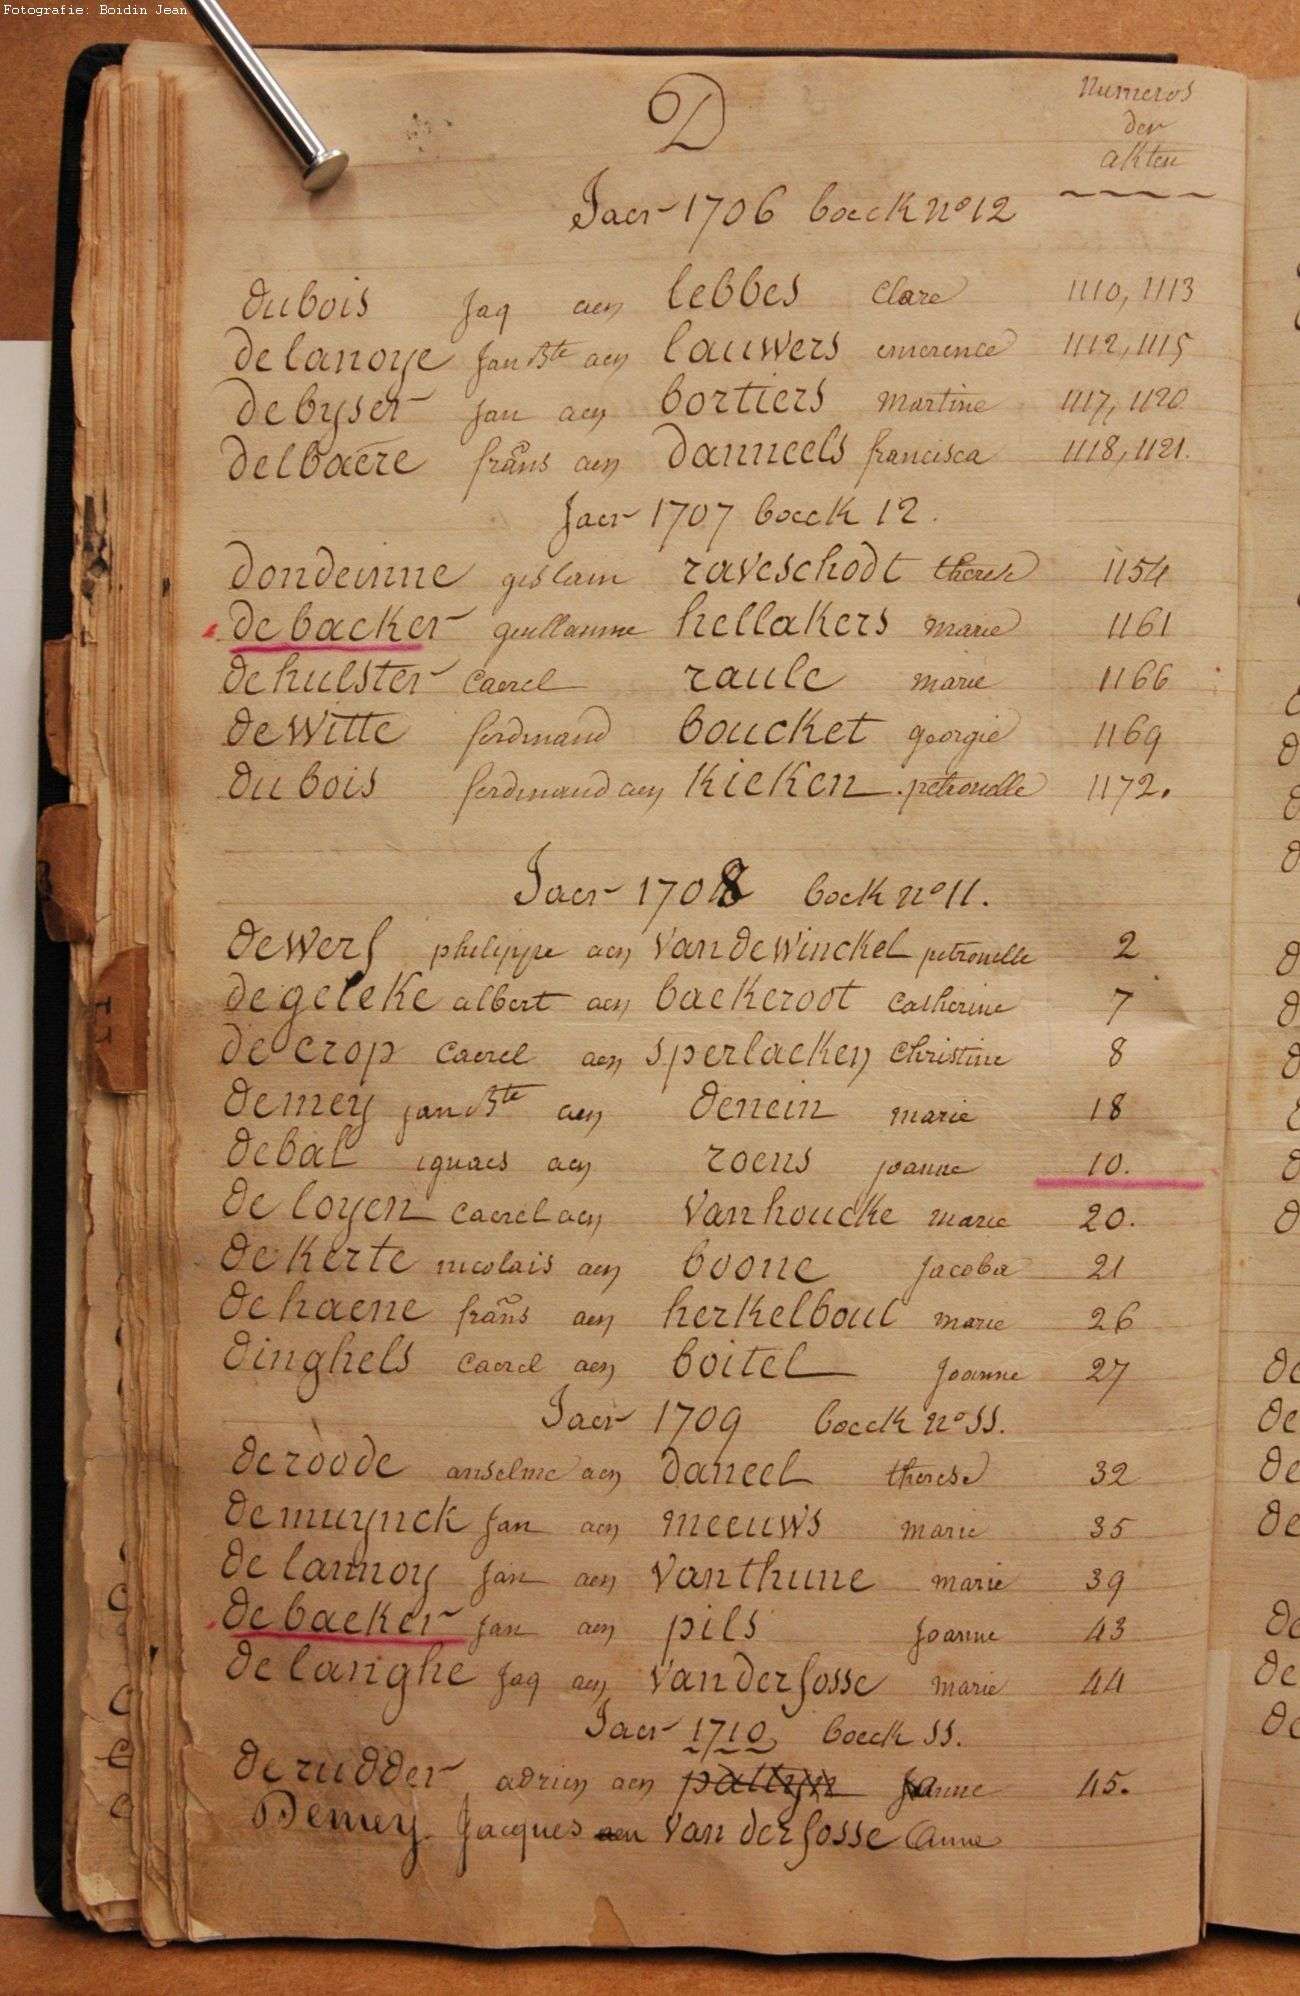 Fotografie: Boidin Jean
D
Numeros
der
akten
Jaer 1706 boeck nº 12
dubois jaq aen lebbes clare 1110, 1113
delanoye jan Bte aen lauwers emerence 1112, 1115
debyser jan aen bortiers martine 1117, 1120
delbaere frans aen danneels francisca 1118, 1121.
Jaer 1707 boeck 12.
dondeinne gislain raveschodt therese 1154
debacker guillaume hellakers marie 1161
dehulster Caerel raule marie 1166
dewitte ferdinand boucket georgie 1169
dubois ferdinand aen kieken petronelle 1172.
Jaer 1708 boek nº 11.
dewerf philippe aen vandewinckel petronelle 2
degeleke albert aen baekeroot catherine 7
decrop Caerel aen sperlacken Christine 8
demey jan Bte aen denein marie 18
debal ignaes aen roens joanne 10.
de loyen Caerel aen vanhoucke marie 20.
dekerte nicolais aen boone jacoba 21
dehaene frans aen herkelbout marie 26
dinghels Caerel aen boitel joanne 27
Jaer 1709 boeck nº 11.
deroode anselme aen daneel therese 32
demuynck jan aen meeuws marie 35
de lannoy jan aen vanthune marie 39
debacker jan aen pils joanne 43
delanghe jaq aen vanderfosse marie 44
Jaer 1710 boeck 11.
derudder adrien aen pattyn 45.
Demey Jacques aen van derfosse Anne